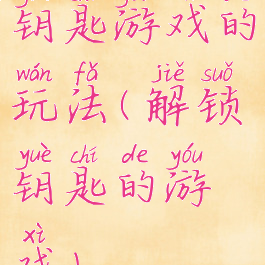 钥匙游戏的
wán fǎ jiě suǒ
玩法(解锁
yuè chí de yóu
钥匙的游
xì
戏)